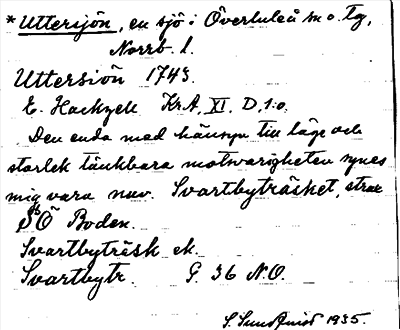 *Uttersjön, en sjö i Överluleå sn o. tg,
Norrb. l.
Uttersiön 1743.
E. Hackzell KrA, XI. D, 1:o.
Den enda med hänsyn till läge och
storlek tänkbara motsvarigheten synes
mig vara nuv. Svartbyträsket, strax
SÖ Boden.
Svartbyträsk ek.
Svartbytr. G. 36 N.O.
S. Sundqvist 1935.